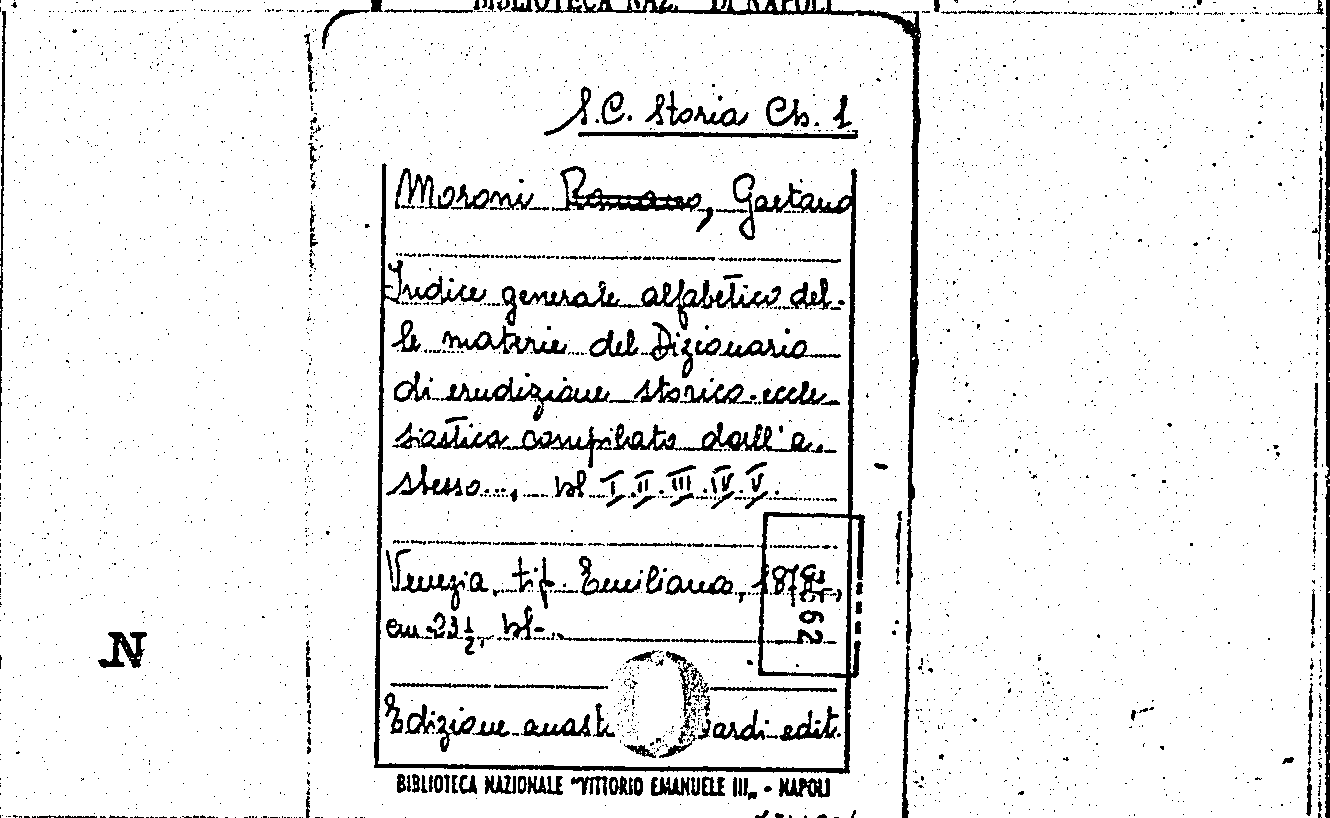 BIBLIOTECA NAZ. DI NAPOLI
S.C. Storia Cb. 1
Moroni Romano, Gaetano
Indice generale alfabetico del-
le materie del Dizionario
di erudizione storico-eccle
siastica compilato dall'a.
stesso..., vl I. II. III. IV. V.
Venezia, tip. Emiliana, 1878
cm 23 1/2, vl-..
62
N
Edizione anast ardi edit.
BIBLIOTECA NAZIONALE "VITTORIO EMANUELE III„ - NAPOLI